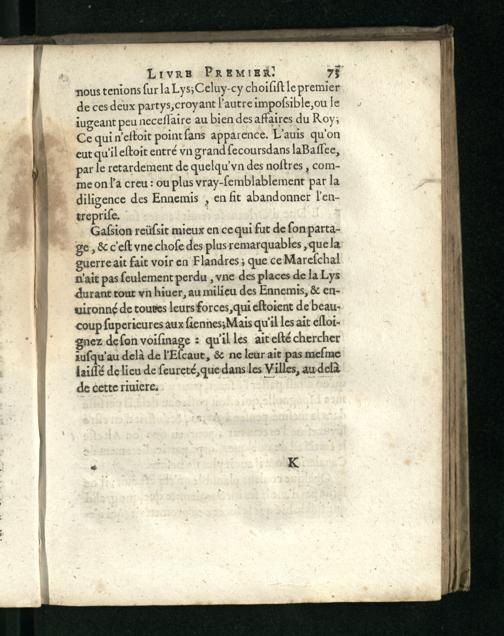 LIVRE PREMIER. 73
nous tenions sur la Lys; Celuy-cy choisist le premier
de ces deux partys, croyant l'autre impossible, ou le
iugeant peu necessaire au bien des affaires du Roy;
Ce qui n'estoit point sans apparence. L'auis qu'on
eut qu'il estoit entré vn grand secours dans la Bassee,
par le retardement de quelqu'vn des nostres, com-
me on l'a creu: ou plus vray-semblablement par la
diligence des Ennemis, en fit abandonner l'en-
treprise.
Gassion reüssit mieux en ce qui fut de son parta-
ge, & c'est vne chose des plus remarquables, que la
guerre ait fait voir en Flandres; que ce Mareschal
n'ait pas seulement perdu, vne des places de la Lys
durant tout vn hiuer, au milieu des Ennemis, & en-
uironné de toutes leurs forces, qui estoient de beau-
coup superieures aux siennes; Mais qu'il les ait esloi-
gnez de son voisinage: qu'il les ait esté chercher
iusqu'au delà de l'Escaut, & ne leur ait pas mesme
laissé de lieu de seureté, que dans les Villes, au delà
de cette riuiere.
K